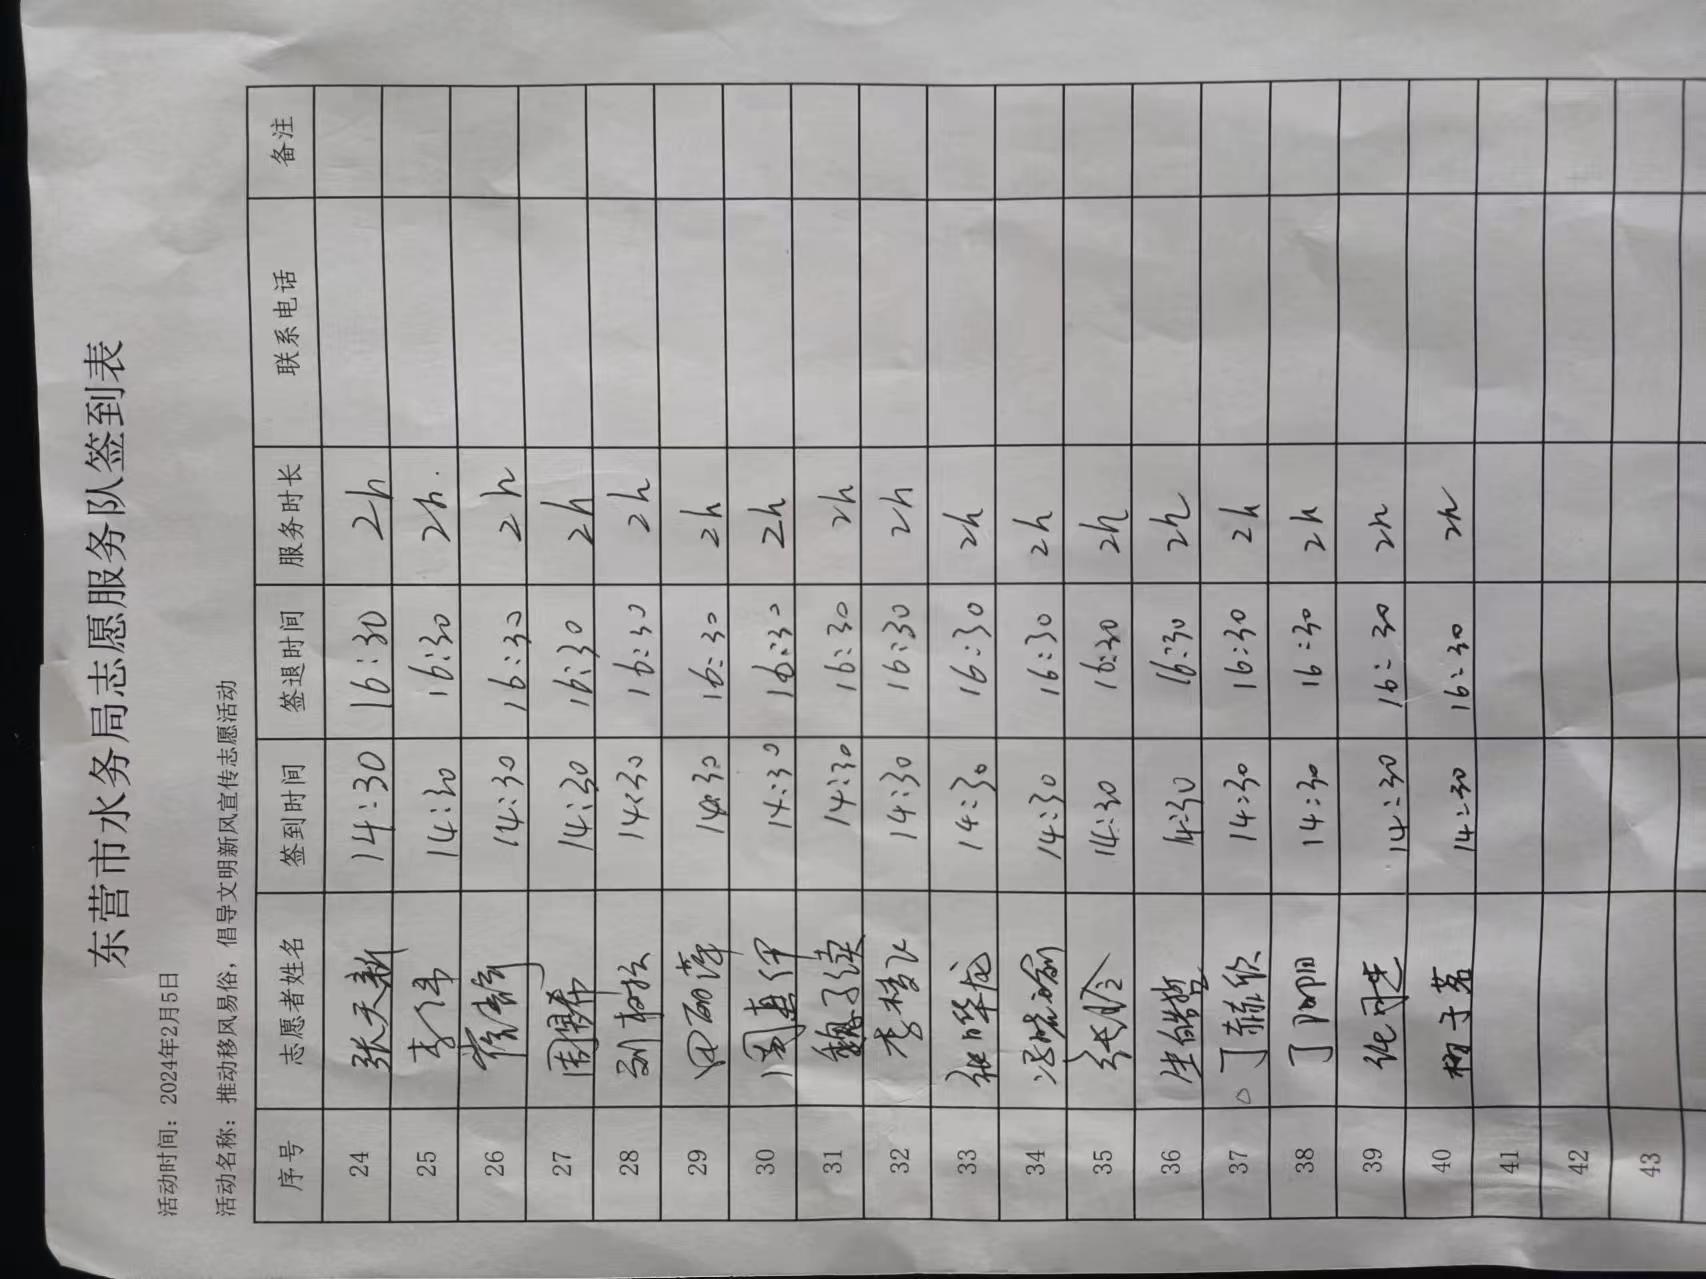 东营市水务局志愿服务队签到表
活动时间：2024年2月5日
活动名称：推动移风易俗，倡导文明新风宣传志愿活动
序号 志愿者姓名 签到时间 签退时间 服务时长 联系电话 备注
24 张天新 14:30 16:30 2h
25 李伟 14:30 16:30 2h.
26 14:30 16:30 2h
27 周希 14:30 16:30 2h
28 刘松 14:30 16:30 2h
29 田丽萍 14:30 16:30 2h
30 周 14:30 16:30 2h
31 魏子续 14:30 16:30 2h
32 李梦飞 14:30 16:30 2h
33 龙 14:30 16:30 2h
34 冯晓 14:30 16:30 2h
35 张玲 14:30 16:30 2h
36 生皓哲 14:30 16:30 2h
37 丁赫欣 14:30 16:30 2h
38 丁阳 14:30 16:30 2h
39 14:30 16:30 2h
40 14:30 16:30 2h
41
42
43